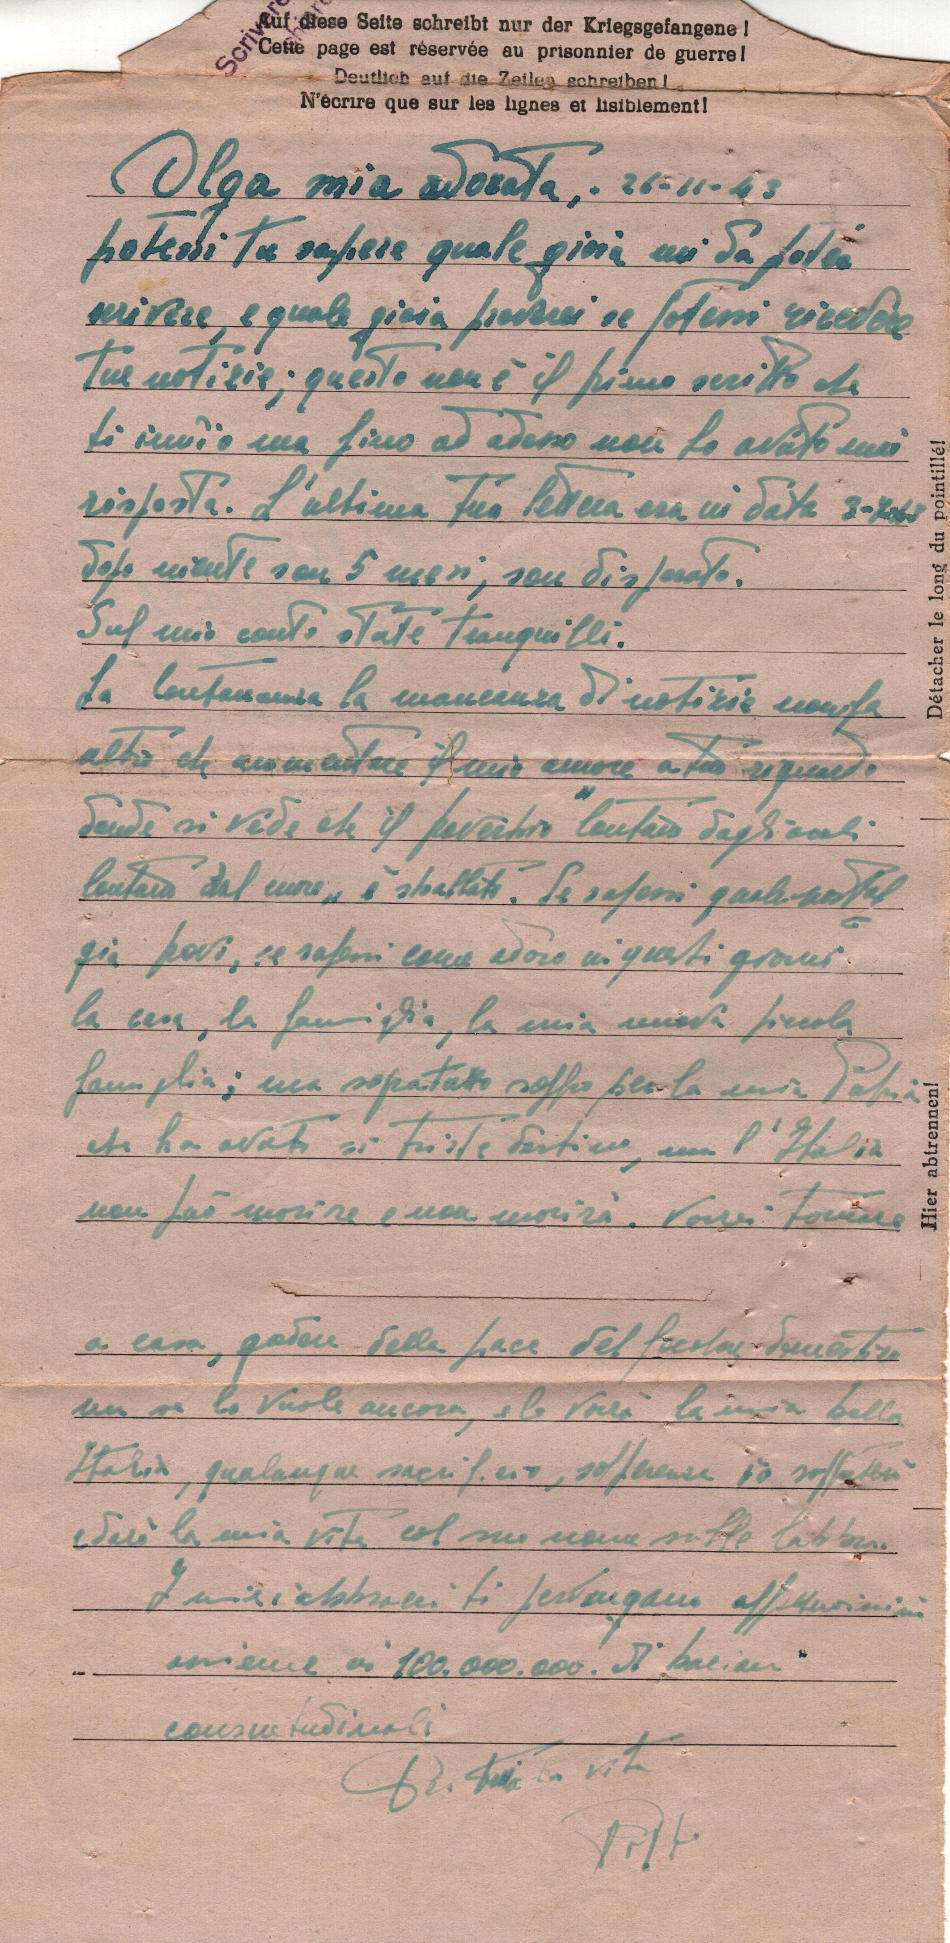 Auf diese Seite schreibt nur der Kriegsgefangene!
Cette page est réservée au prisonnier de guerre!
Deutlich auf die Zeilen schreiben!
N'écrire que sur les lignes et lisiblement!
Scrivere
Olga mia adorata, . 26-11-43
potessi tu sapere quale gioia mi da poter
scrivere, e quale gioia proverei se potessi ricevere
tue notizie; questo non è il primo scritto che
ti invio ma fino ad adesso non ho avuto mai
risposta. L'ultima tua lettera era in data
dopo niente son 5 mesi, son disperato.
Sul mio conto state tranquilli.
La lontananza la mancanza di notizie non fa
altro che aumentare il mio amore a tuo riguardo
donde si vede che il proverbio "lontano dagli occhi
lontano dal cuore" è sballato. Se sapessi quale nostal
gia provi, se sapessi come adoro in questi giorni
la casa, la famiglia, la mia nuova piccola
famiglia; ma sopratutto soffro per la mia Patria
che ha avuto si triste destino, ma l'Italia
non può morire e non morirà. Vorrei tornare
a casa, godere della pace del focolare domestico
ma se lo vuole ancora, e lo vorrà la mia bella
Italia, qualunque sacrificio, sofferenza io soffrirei
e darei la mia vita col suo nome sulle labbra.
I miei abbracci ti pervengano affettuosissimi
assieme ai 100.000.000. di bacioni"
consuetudinali
Per tutta la vita
Détacher le long du pointillé!
Hier abtrennen!